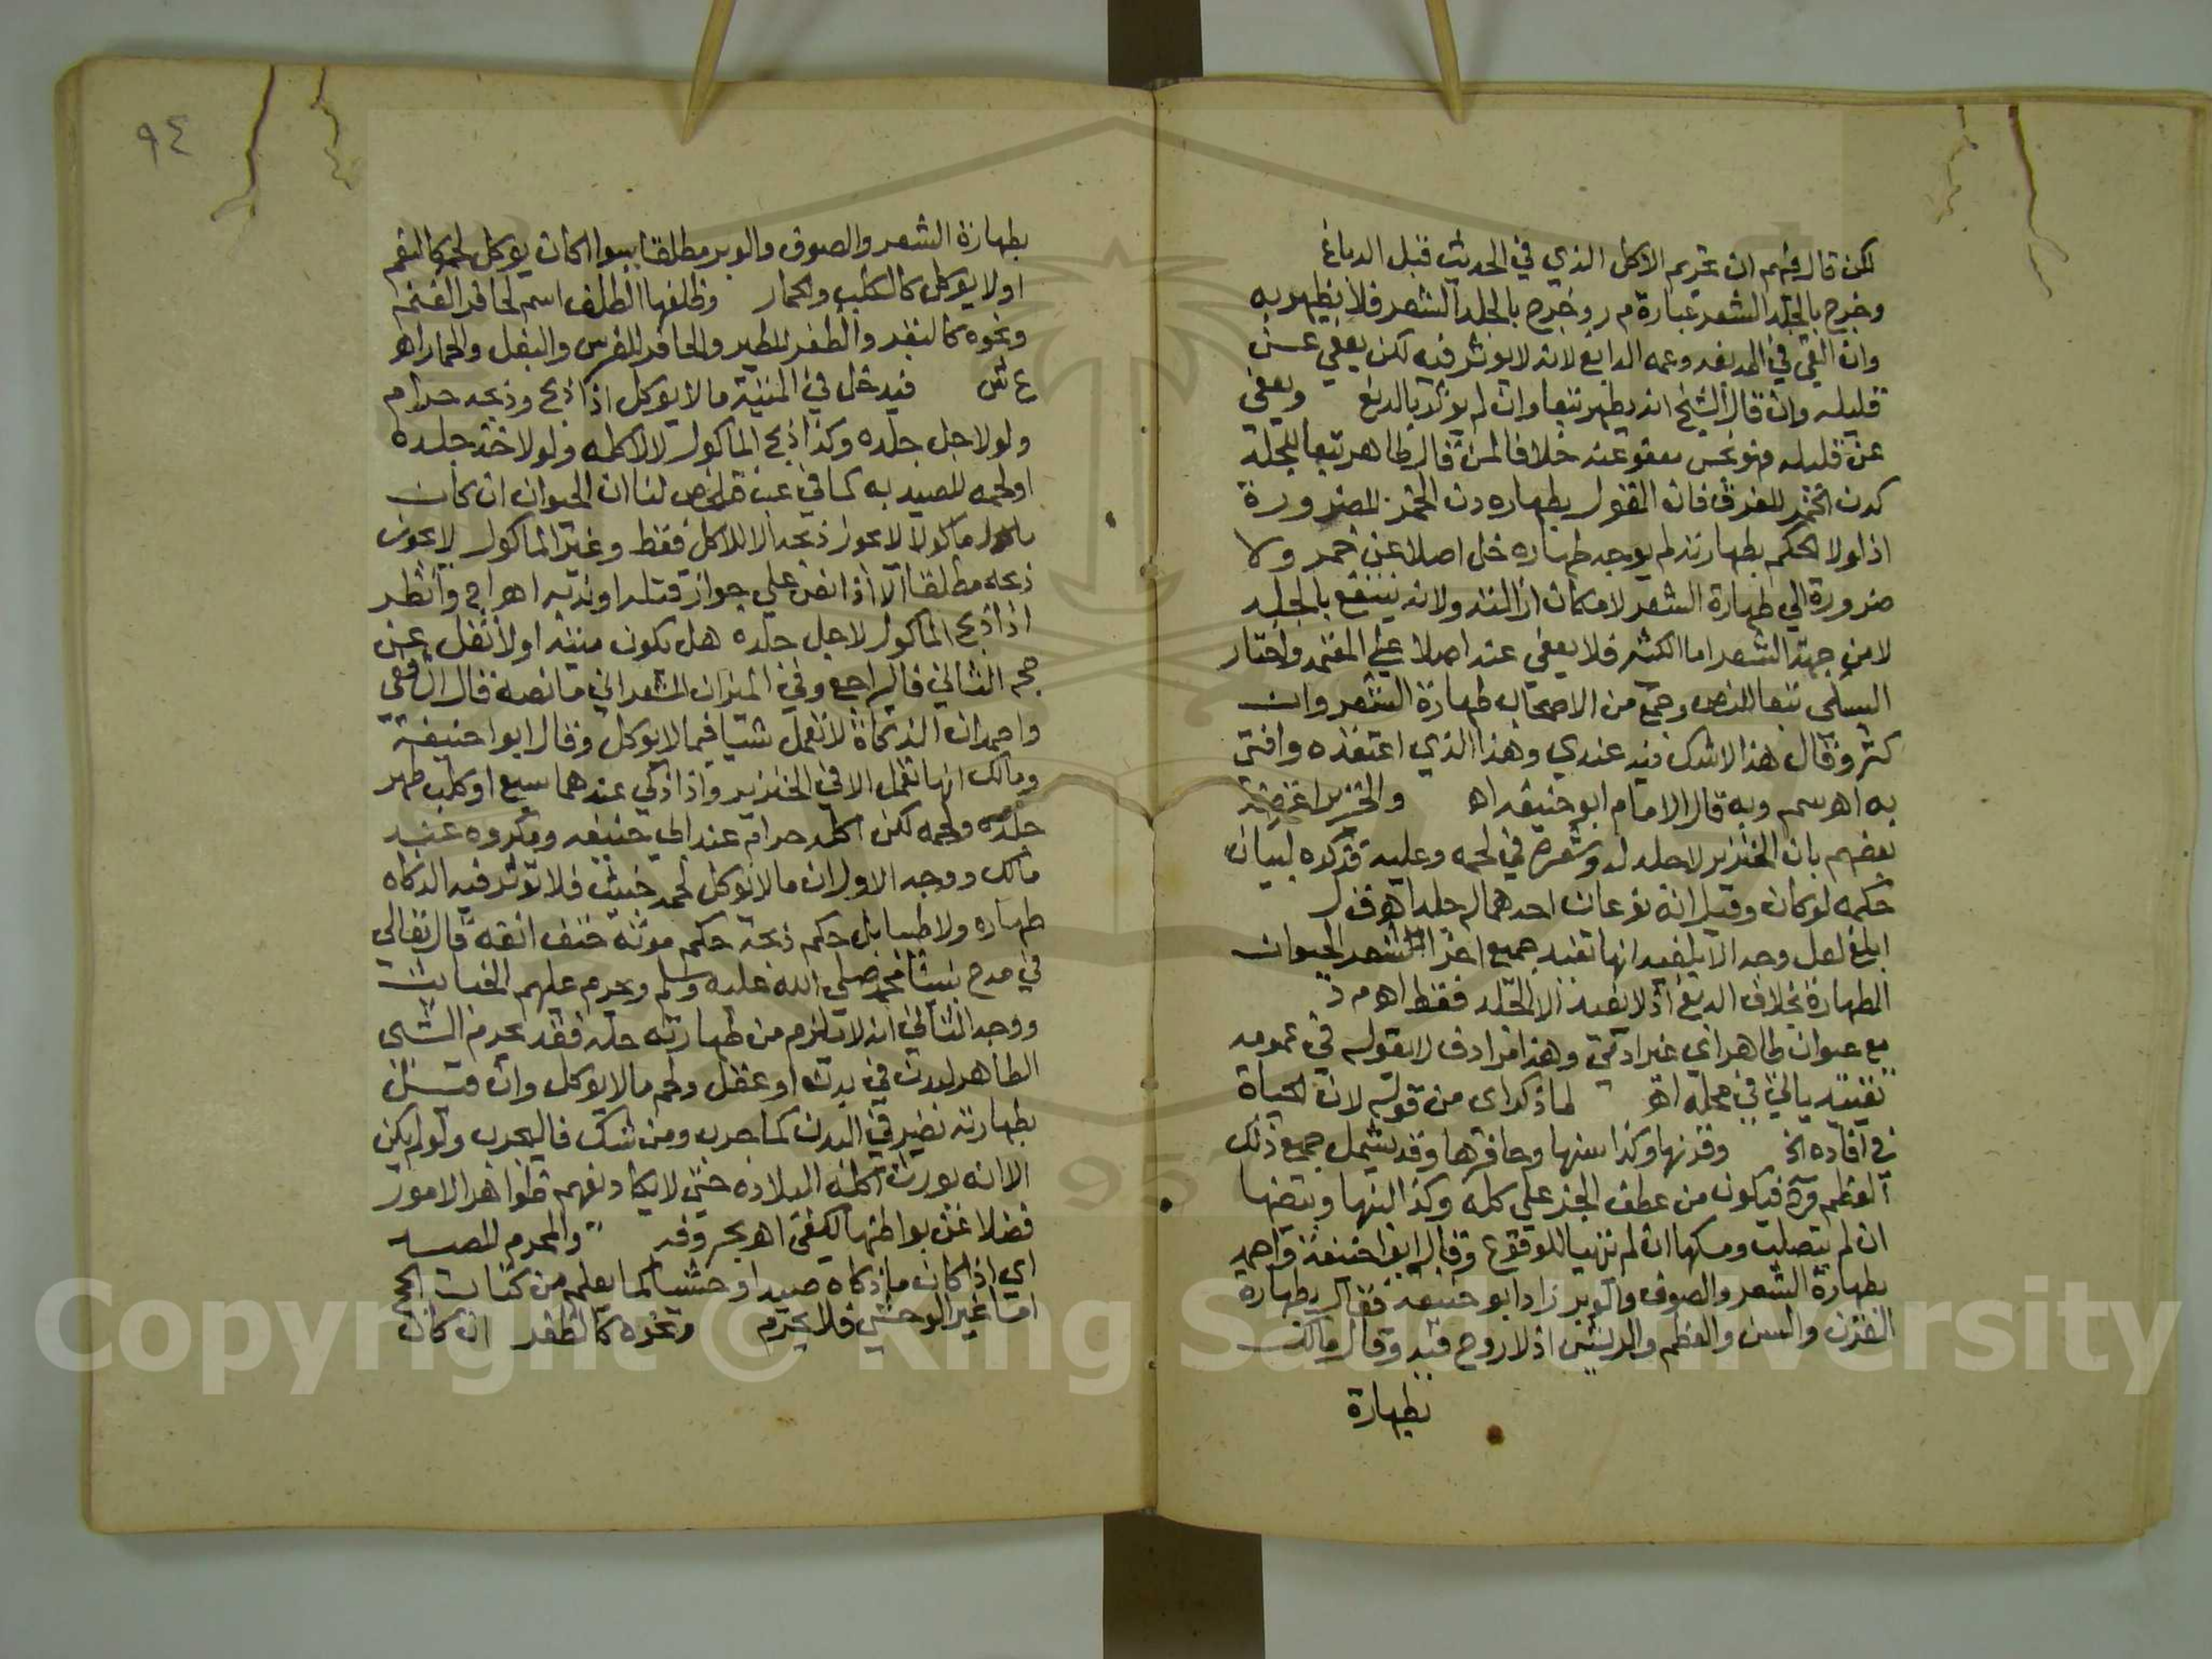 لكن قال فيهم ان تحريم الاكل الذي في الحديث قبل الدباغ
وخرج بالجلد الشعر عبارة م ر وخرج بالجلد الشعر فلا يطهر به
وان القي في المدبغه وعمه الدابغ لانه لا يوثر فيه لكن يعفي عن
قليله وان قال الشيخ انه يطهر تبعا وان لم يوثر بالدبغ ويعفي
عن قليله فهو نجس معفو عنه خلافا لمن قال طاهر تبعا للجلد
كدن الخمر للفرق فان القول بطهاره دن الخمر للضرورة
اذ لولا الحكم بطهارته لم يوجد طهاره خل اصلا عن خمر ولا
ضرورة الي طهارة الشعر لامكان ازالته ولانه ينتفع بالجلد
لا من جهة الشعر اما الكثير فلا يعفي عنه اصلا علي المعتمد واختار
السبكى تبعا للنص وجمع من الاصحاب طهارة الشعر وان
كثر وقال هذا لاشك فيه عندي وهذا الذي اعتقده وافتي
به اهـ سم وبه قال الامام ابو حنيفه اهـ والخنزير اعترضه
بعضهم بان الخنزير لا جلد له وشعره في لحمه وعليه فذكره لبيان
حكمه لو كان وقيل انه نوعان احدهما له جلد اهـ ق ل
ابلغ لعل وجه الابلغيه انها تفيد جميع اجزا الحيوان
الطهارة بخلاف الدبغ اذ لا يفيد الا الجلد فقط اهـ م د
مع حيوان طاهر اي غير ادمي وهذا مراد ق ل بقوله في عمومه
تقييد ياتي في محله اهـ لما ذكر اى من قوله لان الحياة
في افاده الخ وقرنها وكذا سنها وحافرها وقد يشمل جميع ذلك
العظم فيكون من عطف الجزء علي كله وكذا لبنها وبيضها
ان لم يتصلب ومسكها ان لم تتهيا للوقوع وقال ابو حنيفة واحمد
بطهارة الشعر والصوف والوبر زاد ابو حنيفه فقال بطهارة
القرن والسن والعظم والريش اذ لا روح فيه وقال مالك
بطهارة
٩٤
بطهارة الشعر والصوف والوبر مطلقا سوا اكان يوكل لحمه كالنعم
او لا يوكل كالكلب والحمار وظلفها الظلف اسم لحافر الغنم
ونحوه كالبقر والظفر للطير والحافر للفرس والبغل والحمار اهـ
ع ش فيدخل في الميتة ما لا يوكل اذا ذبح وذبحه حرام
ولو لاجل جلده وكذا ذبح الماكول لا لاكله ولو لاخذ جلده
او لحمه للصيد به كما في فلخص لنا ان الحيوان ان كان
ماكولا لا يجوز ذبحه الا للاكل فقط وغير الماكول لا يجوز
ذبحه مطلقا الا اذا نص علي جواز قتله او ندبه اهـ ا ج وانظر
اذا ذبح الماكول لاجل جلده هل يكون ميتة او لا نقل عن
حج الثاني فاليراجع وفي الميزان للشعراني ما نصه قال الشافعي
واحمد ان الذكاة لا تعمل شيا فيما لا يوكل وقال ابو حنيفة
ومالك انها تعمل الا في الخنزير واذا ذكي عندهما سبع او كلب طهر
جلده ولحمه لكن اكله حرام عند ابي حنيفه ومكروه عند
مالك ووجه الاول ان ما لا يوكل لحمه خبيث فلا توثر فيه الذكاه
طهاره ولا طيبا بل حكم ذبحه حكم موته حتف انفه قال تعالي
في مدح نبينا محمد صلي الله عليه وسلم ويحرم عليهم الخبائث
ووجه الثاني انه لا يلزم من طهارته حله فقد يحرم الشى
الطاهر لضرره في بدن او عقل ولحم ما لا يوكل وان قيل
بطهارته يضر في البدن كما جرب ومن شك فاليجرب ولو لم يكن
الا انه يورث اكله البلاده حتى لا يكاد يفهم ظواهر الامور
فضلا عن بواطنها لكفى اهـ بحروفه والمحرم للصيد
اى اذا كان ما ذكاه صيدا وحشيا كما يعلم من كتاب الحج
اما غير الوحشي فلا يحرم ونحوه كالظفر ان كان
Copyright © King Saud University